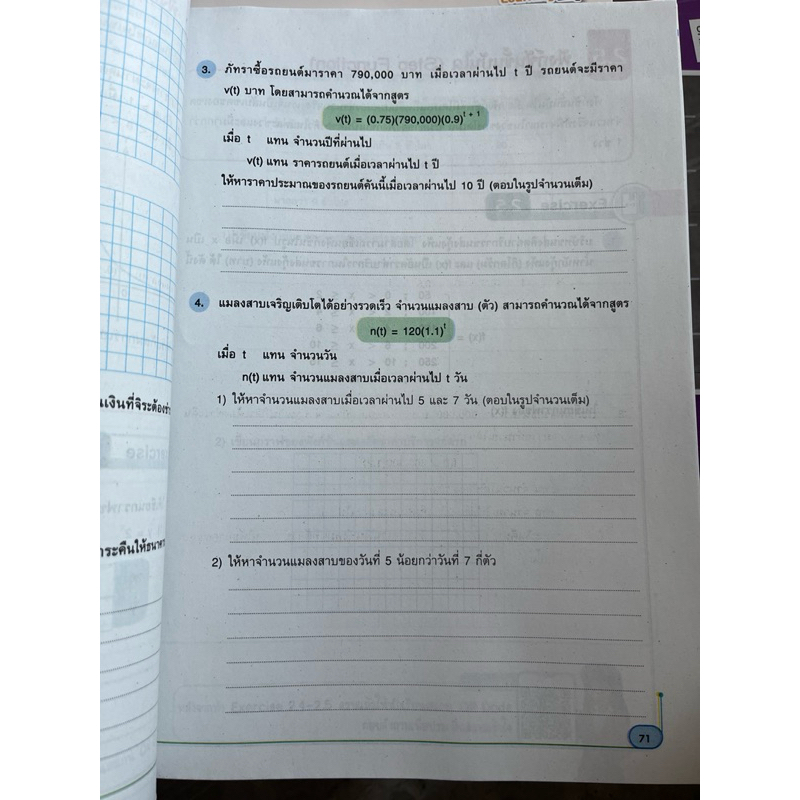 3. ภัทราซื้อรถยนต์มาราคา 790,000 บาท เมื่อเวลาผ่านไป t ปี รถยนต์จะมีราคา
v(t) บาท โดยสามารถคำนวณได้จากสูตร
v(t) = (0.75)(790,000)(0.9)^(t + 1)
เมื่อ t แทน จำนวนปีที่ผ่านไป
v(t) แทน ราคารถยนต์เมื่อเวลาผ่านไป t ปี
ให้หาราคาประมาณของรถยนต์คันนี้เมื่อเวลาผ่านไป 10 ปี (ตอบในรูปจำนวนเต็ม)
4. แมลงสาบเจริญเติบโตได้อย่างรวดเร็ว จำนวนแมลงสาบ (ตัว) สามารถคำนวณได้จากสูตร
n(t) = 120(1.1)^t
เมื่อ t แทน จำนวนวัน
n(t) แทน จำนวนแมลงสาบเมื่อเวลาผ่านไป t วัน
เงินที่จิระต้อง
1) ให้หาจำนวนแมลงสาบเมื่อเวลาผ่านไป 5 และ 7 วัน (ตอบในรูปจำนวนเต็ม)
2) ให้หาจำนวนแมลงสาบของวันที่ 5 น้อยกว่าวันที่ 7 กี่ตัว
71